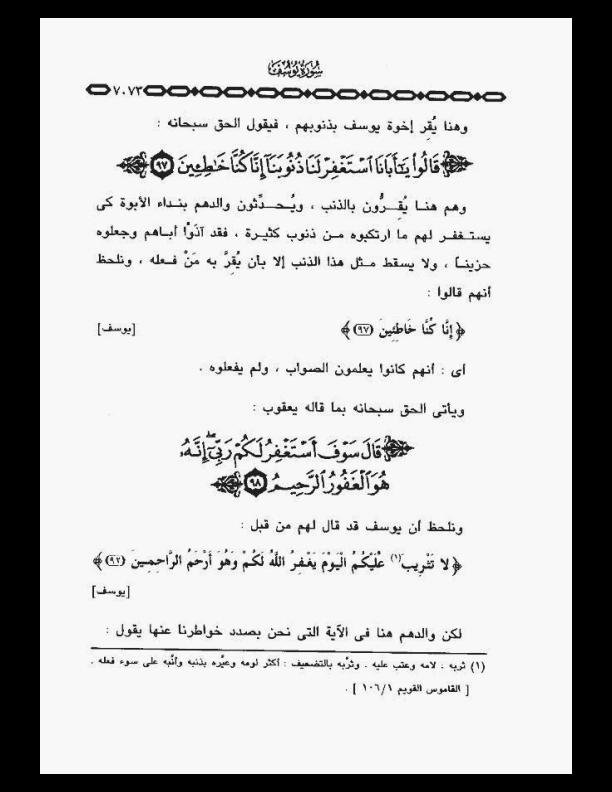 سورة يوسف
٧٠٧٣
وهنا يُقِر إخوة يوسف بذنوبهم ، فيقول الحق سبحانه :
قَالُوا۟ يَـٰٓأَبَانَا ٱسْتَغْفِرْ لَنَا ذُنُوبَنَآ إِنَّا كُنَّا خَـٰطِـِٔينَ ٩٧
وهم هنا يُقِرُّون بالذنب ، ويُحدِّثون والدهم بنداء الأبوة كى
يستغفر لهم ما ارتكبوه من ذنوب كثيرة ، فقد آذَوْا أباهم وجعلوه
حزيناً ، ولا يسقط مثل هذا الذنب إلا بأن يُقِرَّ به مَنْ فعله ، ونلحظ
أنهم قالوا :
﴿ إِنَّا كُنَّا خَاطِئِينَ (٩٧) ﴾ [يوسف]
أى : أنهم كانوا يعلمون الصواب ، ولم يفعلوه .
ويأتى الحق سبحانه بما قاله يعقوب :
قَالَ سَوْفَ أَسْتَغْفِرُ لَكُمْ رَبِّىٓ ۖ إِنَّهُۥ
هُوَ ٱلْغَفُورُ ٱلرَّحِيمُ ٩٨
ونلحظ أن يوسف قد قال لهم من قبل :
﴿ لا تَثْرِيبَ(١) عَلَيْكُمُ الْيَوْمَ يَغْفِرُ اللَّهُ لَكُمْ وَهُوَ أَرْحَمُ الرَّاحِمِينَ (٩٢) ﴾
[يوسف]
لكن والدهم هنا فى الآية التى نحن بصدد خواطرنا عنها يقول :
(١) ثربه . لامه وعتب عليه . وثرَّبه بالتضعيف : أكثر لومه وعيَّره بذنبه وأنَّبه على سوء فعله .
[ القاموس القويم ١٠٦/١ ] .